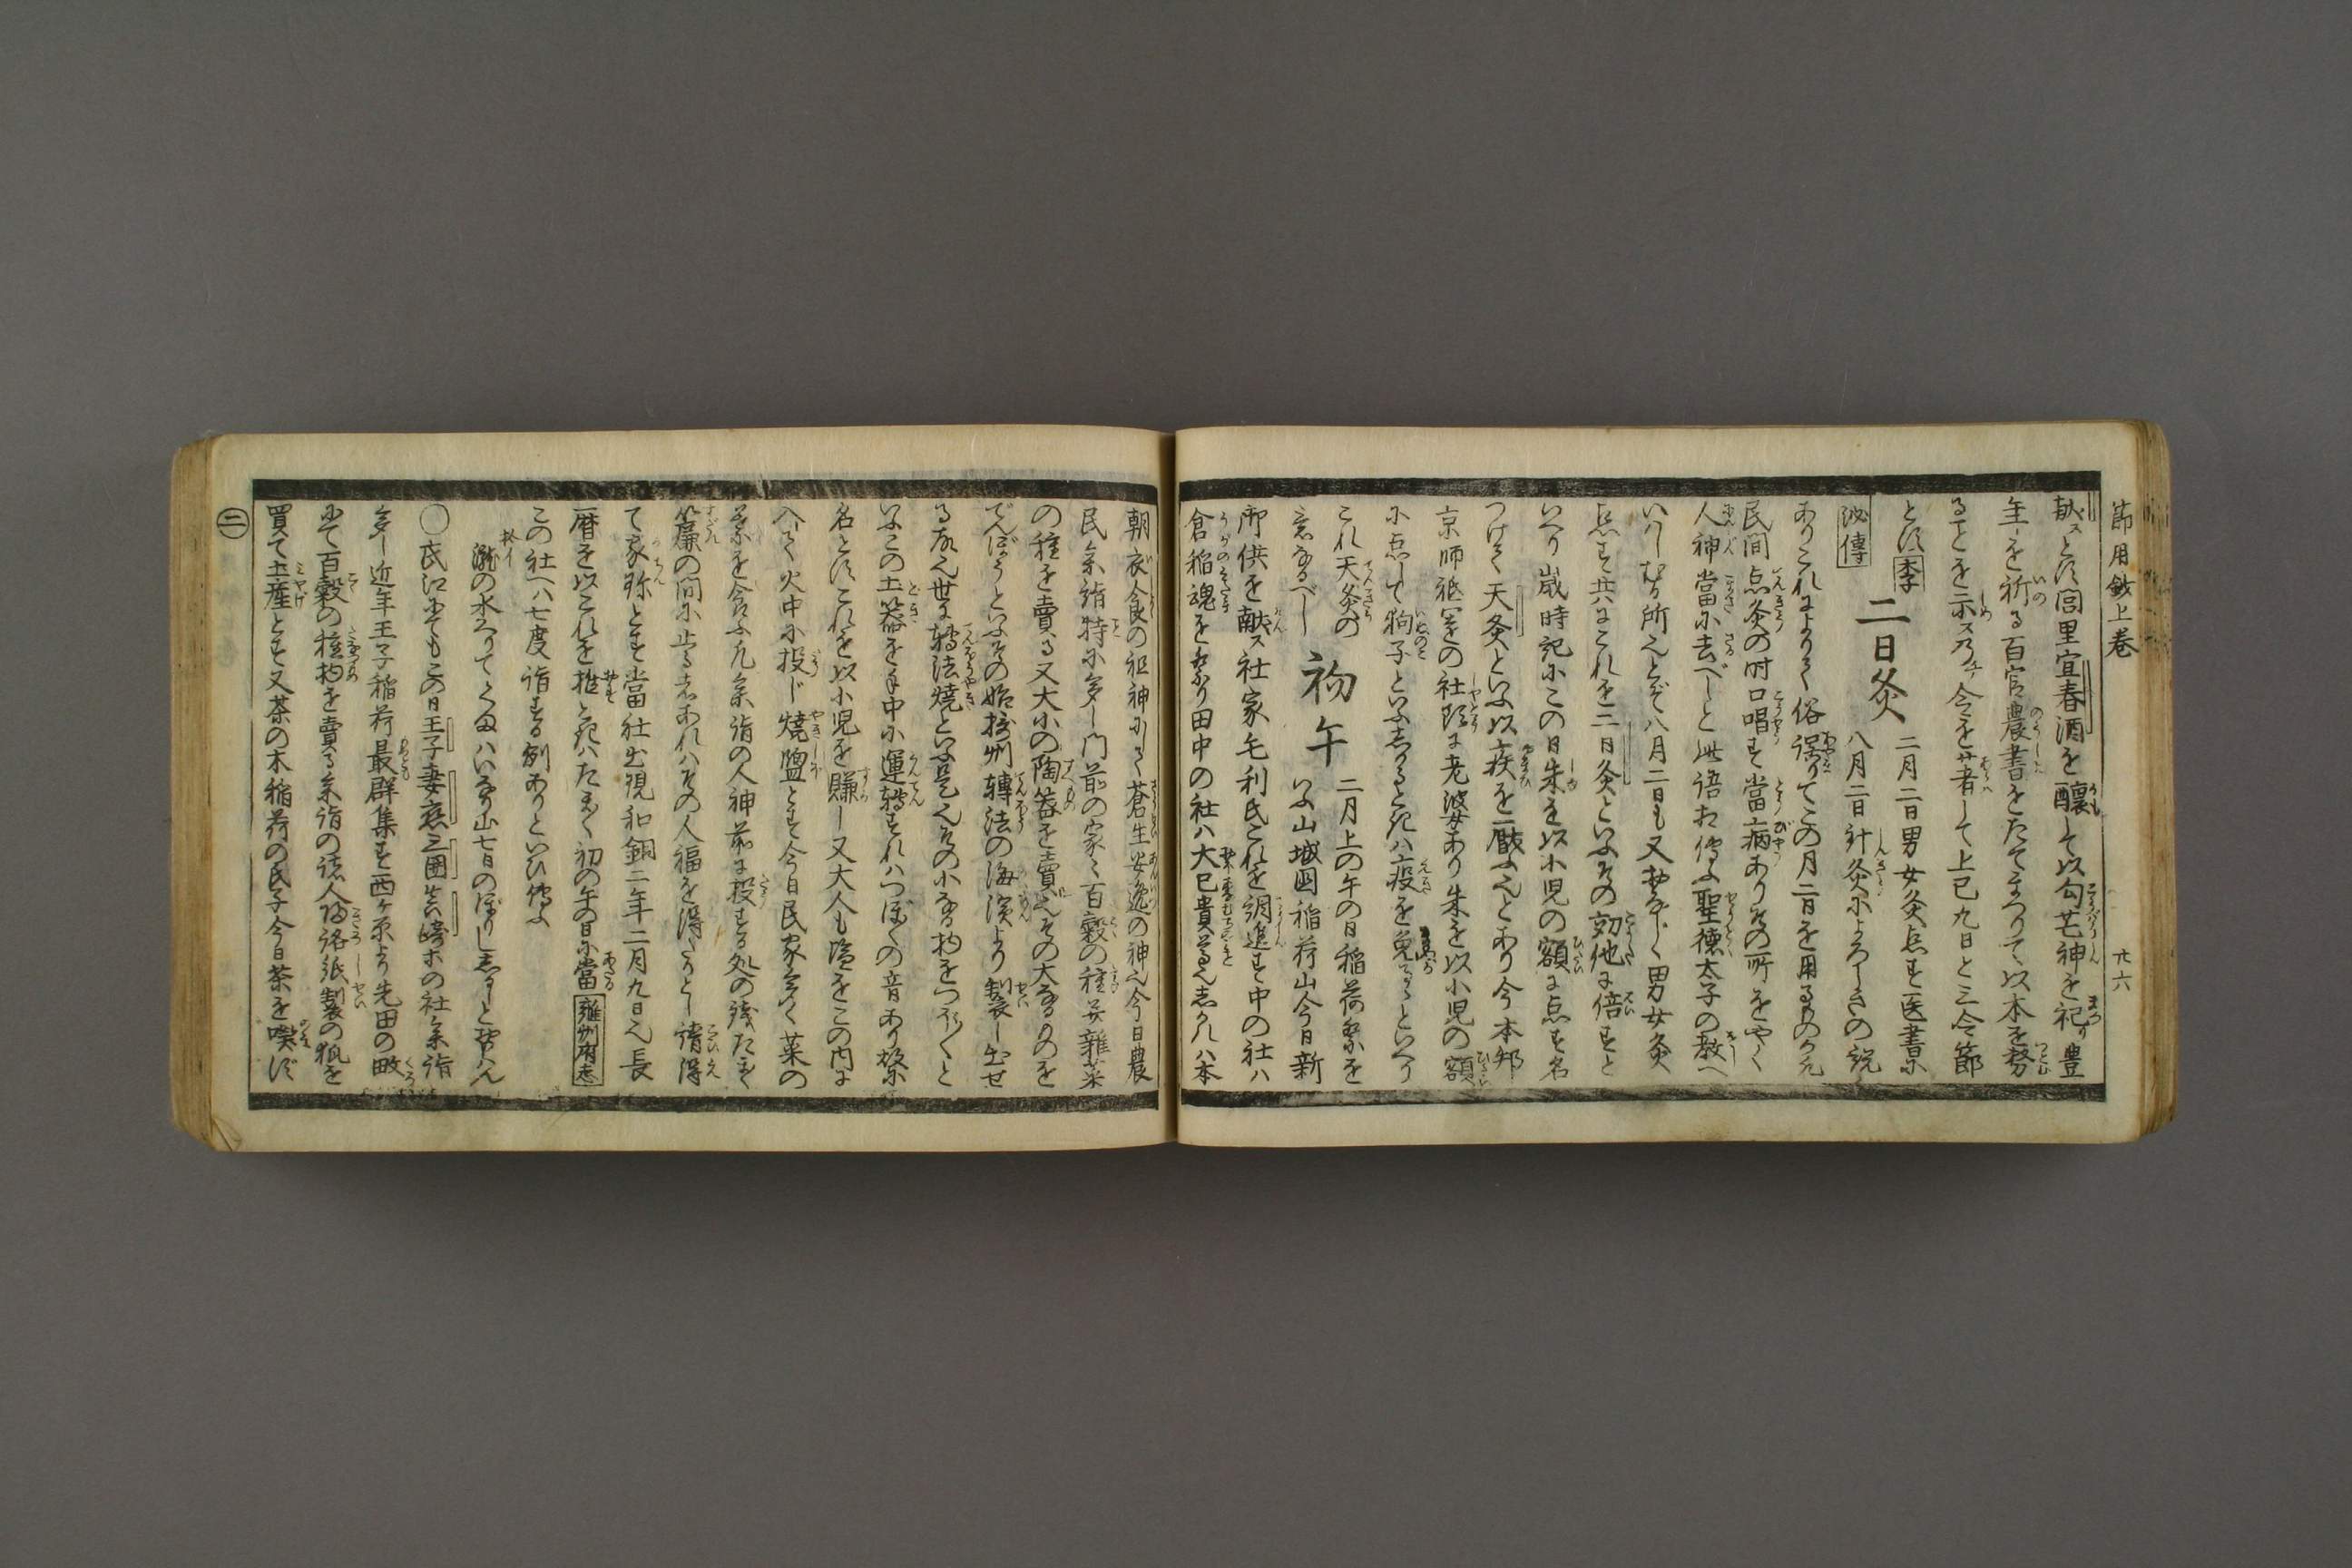 節用鈔上巻
廿六
献ズとは宮里宜春酒を醸して以勾芒神を祀り豊
年を祈る百官農書をたてまつりて以本を務
ることを示ス乃チ今を著して上巳九日と三令節
とは季
二日灸
二月二日男女灸点す医書に
八月二日針灸によろしきの説
秘傳
ありこれによりて俗誤りてこの月二日を用るものか又
民間点灸の時口唱す當病ありその所をやく
人神當に去べしと此語相傳ふ聖徳太子の教へ
所也とぞ八月二日も又おなじく男女灸
点す共にこれを二日灸といふその効他に倍すと
いへり歳時記にこの日朱を以小児の額に点す名
つけて天灸といふ以疾を厭ふ也とあり今本邦
京師祇園の社頭に老婆あり朱を以小児の額
に点して狗子といふしかるときハ疫を免るゝといへり
これ天灸の
意なるべし
初午
二月上の午の日稲荷祭を
いふ山城国稲荷山今日新
御供を献ズ社家毛利氏これを調進す中の社ハ
倉稲魂をまつり田中の社ハ大己貴尊也しかれハ本
朝衣食の祖神にして蒼生安逸の神也今日農
民参詣特に多し門前の家々百穀の種并雑菜
の種を賣る又大小の陶器を賣也その大なるものを
でんぼうといふその始摂州轉法の海濱より製し出せ
る故也世に轉法焼といふ是也その小なる物をつぼ〳〵と
いふこの土器を手中に運轉すれハつぼ〳〵の音あり
名とすこれを以小児を賺し又大人も塩をこの内に
入レて火中に投じ焼塩とす今日民家
の間に止るものあれハその人福を得たりとし請得
て家珎とす當社出現和銅二年二月九日也長
暦を以これを推ときハたま〳〵初の午の日に當る雍州府志
この社へハ七度詣する例ありといひ傳ふ
瀧の水
〇武江にてもこの日王子妻恋三囲真崎等の社参詣
多し近年王子稲荷最群集す西ケ原より先田の畷
にて百穀の種物を賣る参詣の諸人
買て土産とす又茶の木稲荷の氏子今日茶を喫ず
二